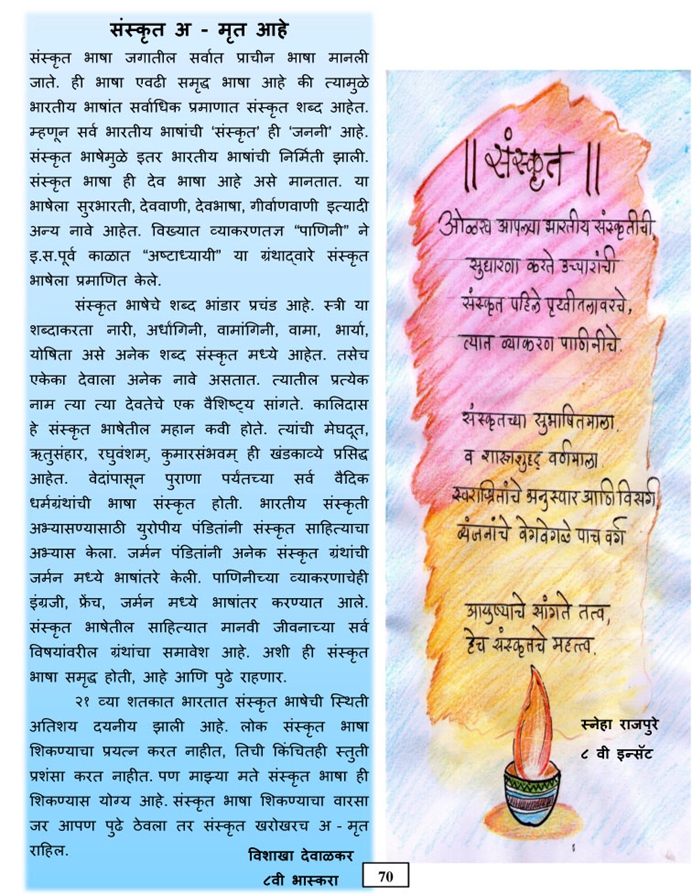 संस्कृत अ - मृत आहे
संस्कृत भाषा जगातील सर्वात प्राचीन भाषा मानली
जाते. ही भाषा एवढी समृद्ध भाषा आहे की त्यामुळे
भारतीय भाषांत सर्वाधिक प्रमाणात संस्कृत शब्द आहेत.
म्हणून सर्व भारतीय भाषांची ‘संस्कृत’ ही ‘जननी’ आहे.
संस्कृत भाषेमुळे इतर भारतीय भाषांची निर्मिती झाली.
संस्कृत भाषा ही देव भाषा आहे असे मानतात. या
भाषेला सुरभारती, देववाणी, देवभाषा, गीर्वाणवाणी इत्यादी
अन्य नावे आहेत. विख्यात व्याकरणतज्ञ “पाणिनी” ने
इ.स.पूर्व काळात “अष्टाध्यायी” या ग्रंथाद्वारे संस्कृत
भाषेला प्रमाणित केले.
संस्कृत भाषेचे शब्द भांडार प्रचंड आहे. स्त्री या
शब्दाकरता नारी, अर्धांगिनी, वामांगिनी, वामा, भार्या,
योषिता असे अनेक शब्द संस्कृत मध्ये आहेत. तसेच
एकेका देवाला अनेक नावे असतात. त्यातील प्रत्येक
नाम त्या त्या देवतेचे एक वैशिष्ट्य सांगते. कालिदास
हे संस्कृत भाषेतील महान कवी होते. त्यांची मेघदूत,
ऋतुसंहार, रघुवंशम्, कुमारसंभवम् ही खंडकाव्ये प्रसिद्ध
आहेत. वेदांपासून पुराणा पर्यंतच्या सर्व वैदिक
धर्मग्रंथांची भाषा संस्कृत होती. भारतीय संस्कृती
अभ्यासण्यासाठी युरोपीय पंडितांनी संस्कृत साहित्याचा
अभ्यास केला. जर्मन पंडितांनी अनेक संस्कृत ग्रंथांची
जर्मन मध्ये भाषांतरे केली. पाणिनीच्या व्याकरणाचेही
इंग्रजी, फ्रेंच, जर्मन मध्ये भाषांतर करण्यात आले.
संस्कृत भाषेतील साहित्यात मानवी जीवनाच्या सर्व
विषयांवरील ग्रंथांचा समावेश आहे. अशी ही संस्कृत
भाषा समृद्ध होती, आहे आणि पुढे राहणार.
२१ व्या शतकात भारतात संस्कृत भाषेची स्थिती
अतिशय दयनीय झाली आहे. लोक संस्कृत भाषा
शिकण्याचा प्रयत्न करत नाहीत, तिची किंचितही स्तुती
प्रशंसा करत नाहीत. पण माझ्या मते संस्कृत भाषा ही
शिकण्यास योग्य आहे. संस्कृत भाषा शिकण्याचा वारसा
जर आपण पुढे ठेवला तर संस्कृत खरोखरच अ - मृत
राहिल.
विशाखा देवाळकर
८वी भास्करा
|| संस्कृत ||
ओळख आपल्या भारतीय संस्कृतीची,
सुधारणा करते उच्चारांची
संस्कृत पहिले पृथ्वीतलावरचे,
त्यात व्याकरण पाणिनीचे.
संस्कृतच्या सुभाषितमाला.
व शास्त्रशुद्द वर्णमाला
स्वराश्रितांचे अनुस्वार आणि विसर्ग,
व्यंजनांचे वेगवेगळे पाच वर्ग
आयुष्याचे सांगते तत्व,
हेच संस्कृतचे महत्त्व.
स्नेहा राजपुरे
८ वी इन्सॅट
70